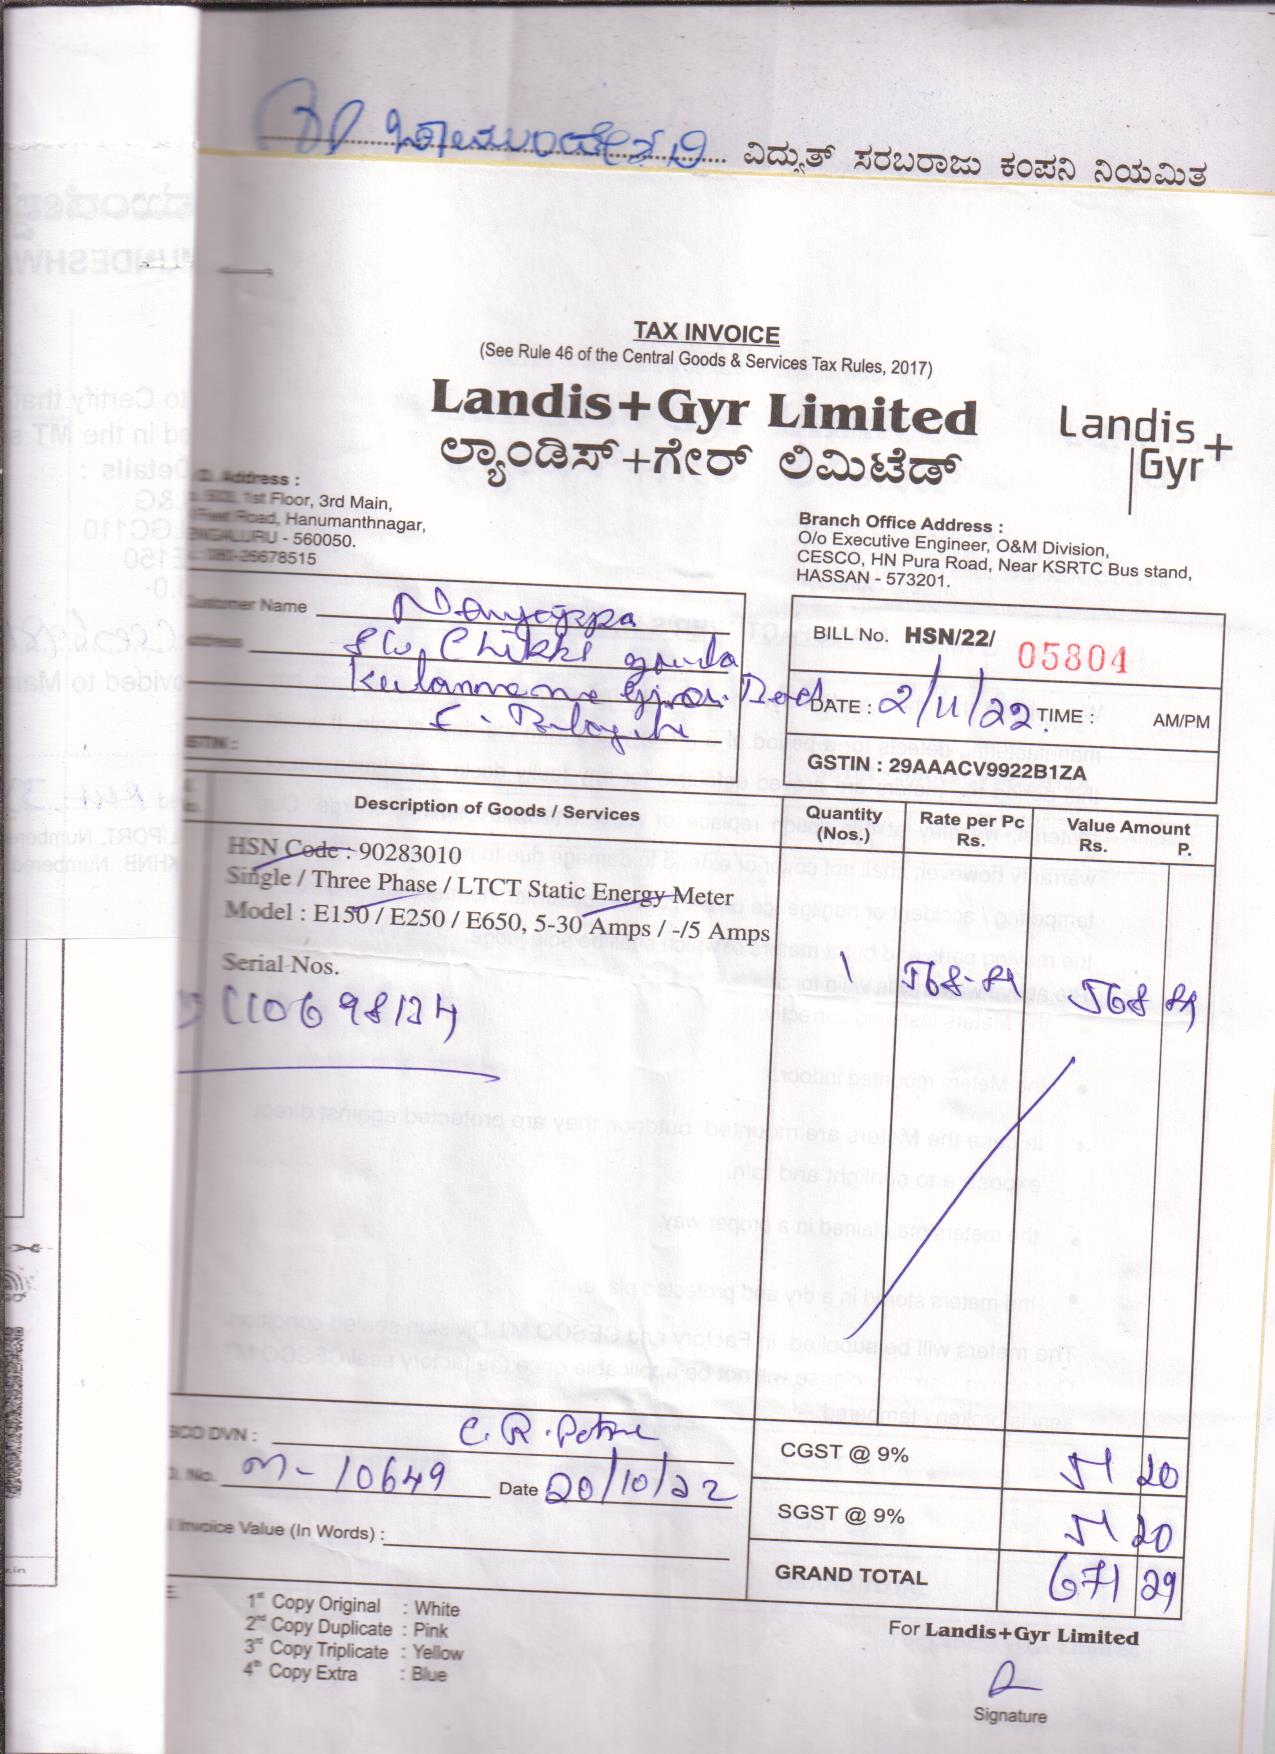 ಚಾಮುಂಡೇಶ್ವರಿ ವಿದ್ಯುತ್ ಸರಬರಾಜು ಕಂಪನಿ ನಿಯಮಿತ
TAX INVOICE
(See Rule 46 of the Central Goods & Services Tax Rules, 2017)
Landis+Gyr Limited
ಲ್ಯಾಂಡಿಸ್+ಗೇರ್ ಲಿಮಿಟೆಡ್
Landis
Gyr+
Address :
1st Floor, 3rd Main,
Road, Hanumanthnagar,
BENGALURU - 560050.
080-26678515
Branch Office Address :
O/o Executive Engineer, O&M Division,
CESCO, HN Pura Road, Near KSRTC Bus stand,
HASSAN - 573201.
Customer Name Nanjappa
Address S/o. Chikke gowda
GSTIN :
BILL No. HSN/22/ 05804
DATE : 2/11/22 TIME : AM/PM
GSTIN : 29AAACV9922B1ZA
Description of Goods / Services Quantity (Nos.) Rate per Pc Rs. Value Amount Rs. P.
HSN Code : 90283010
Single / Three Phase / LTCT Static Energy Meter
Model : E150 / E250 / E650, 5-30 Amps / -/5 Amps
Serial Nos.
C10698124 1 568-89 568 89
DVN : C.R.Patna
No. m-10649 Date 20/10/22
Invoice Value (In Words) :
CGST @ 9% 51 20
SGST @ 9% 51 20
GRAND TOTAL 671 29
1st Copy Original : White
2nd Copy Duplicate : Pink
3rd Copy Triplicate : Yellow
4th Copy Extra : Blue
For Landis+Gyr Limited
Signature